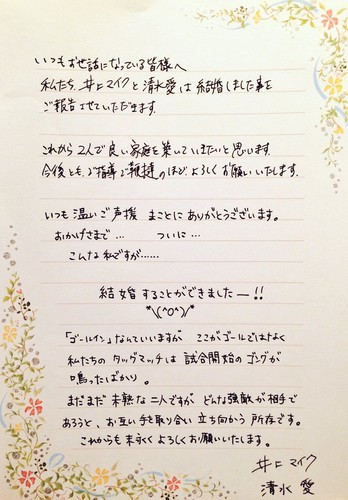 いつもお世話になっている皆様へ
私たち、井上マイクと清水愛は結婚しました事を
ご報告させていただきます。
これから2人で良い家庭を築いていきたいと思います。
今後とも、ご指導ご鞭撻のほど、よろしくお願いいたします。
いつも温いご声援 まことにありがとうございます。
おかげさまで… ついに…
こんな私ですが……
結婚することができましたー!!
*\(^o^)/*
「ゴールイン」なんていいますが ここがゴールではなく
私たちのタッグマッチは試合開始のゴングが
鳴ったばかり。
まだまだ未熟な二人ですが どんな強敵が相手で
あろうと、お互い手を取り合い立ち向かう所存です。
これからも末永くよろしくお願いいたします。
井上マイク
清水 愛